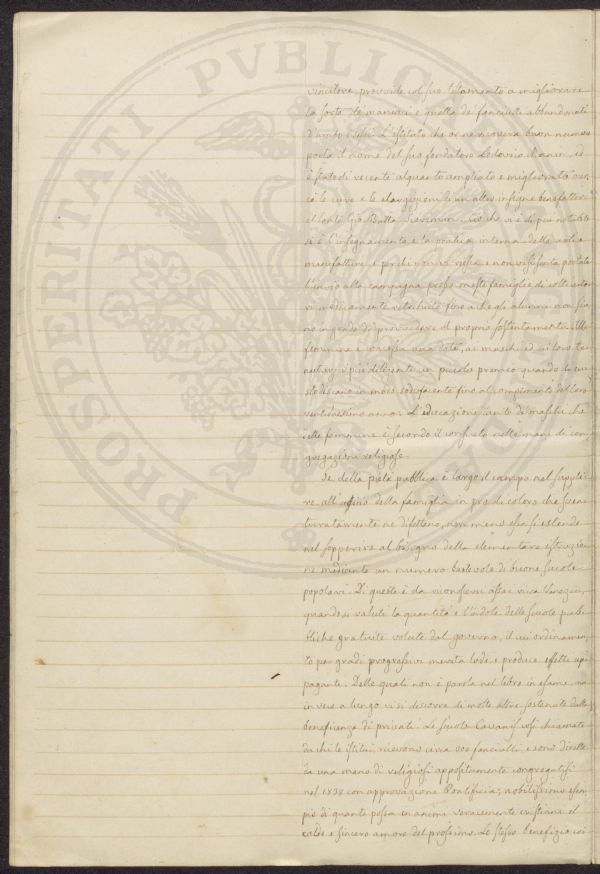 PROSPERITATI PVBLICAE
vincitore, provvide col suo testamento a migliorare
la sorte de' manini e quella de' fanciulli abbandonati
d'ambi i sessi. L'istituto che or ne ricovera buon numero
porta il nome del suo fondatore Lodovico Manin, ed
è stato di recente alquanto ampliato e migliorato
le cure e le elargizioni di un altro insigne benefattore
il Conte Gio Batta. Ciò che vi è di più notabile
si è l'insegnamento e la pratica interna delle arti e
manifatture, e perchè non vi resta e non vi si senta portato
l'invio alla campagna presso oneste famiglie di coltivato
ri modicamente retribuite fino a che gli alunni non sia
no in grado di provvedere al proprio sostentamento. Alle
femmine è concessa una dote, ai maschi ed ai loro te
nutari i più diligenti un piccolo premio quando li cu
stodiscano in modo sodisfacente fino al compimento del loro
ventunesimo anno. L'educazione tanto de' maschi che
delle femmine è secondo il consueto nelle mani di con
gregazioni religiose.
Se della pietà pubblica è largo il campo nel suppli
re all'uffizio della famiglia in pro di coloro che sven
turatamente ne difettano, non meno essa si estende
nel sopperire al bisogno della elementare istruzio
ne mediante un numero bastevole di buone scuole
popolari. Di queste è da riconoscersi assai ricca Venezia,
quando si valuti la quantità e l'indole delle scuole pub
bliche gratuite volute dal governo, il cui ordinamen
to per gradi progressivi merita lode, e produce effetti ap
pagante. Delle quali non è parola nel libro in esame, ma
in vece a lungo vi si discorre di molte altre sostenute dalla
beneficenza di privati. Le scuole Cavanis così chiamate
da chi le istituì, ricevono circa 300 fanciulli e sono dirette
da una mano di religiosi appositamente congregatisi
nel 1838 con approvazione Pontificia; nobilissimo esem
pio di quanto possa in animi veracemente cristiani il
caldo e sincero amore del prossimo. Lo stesso benefizio